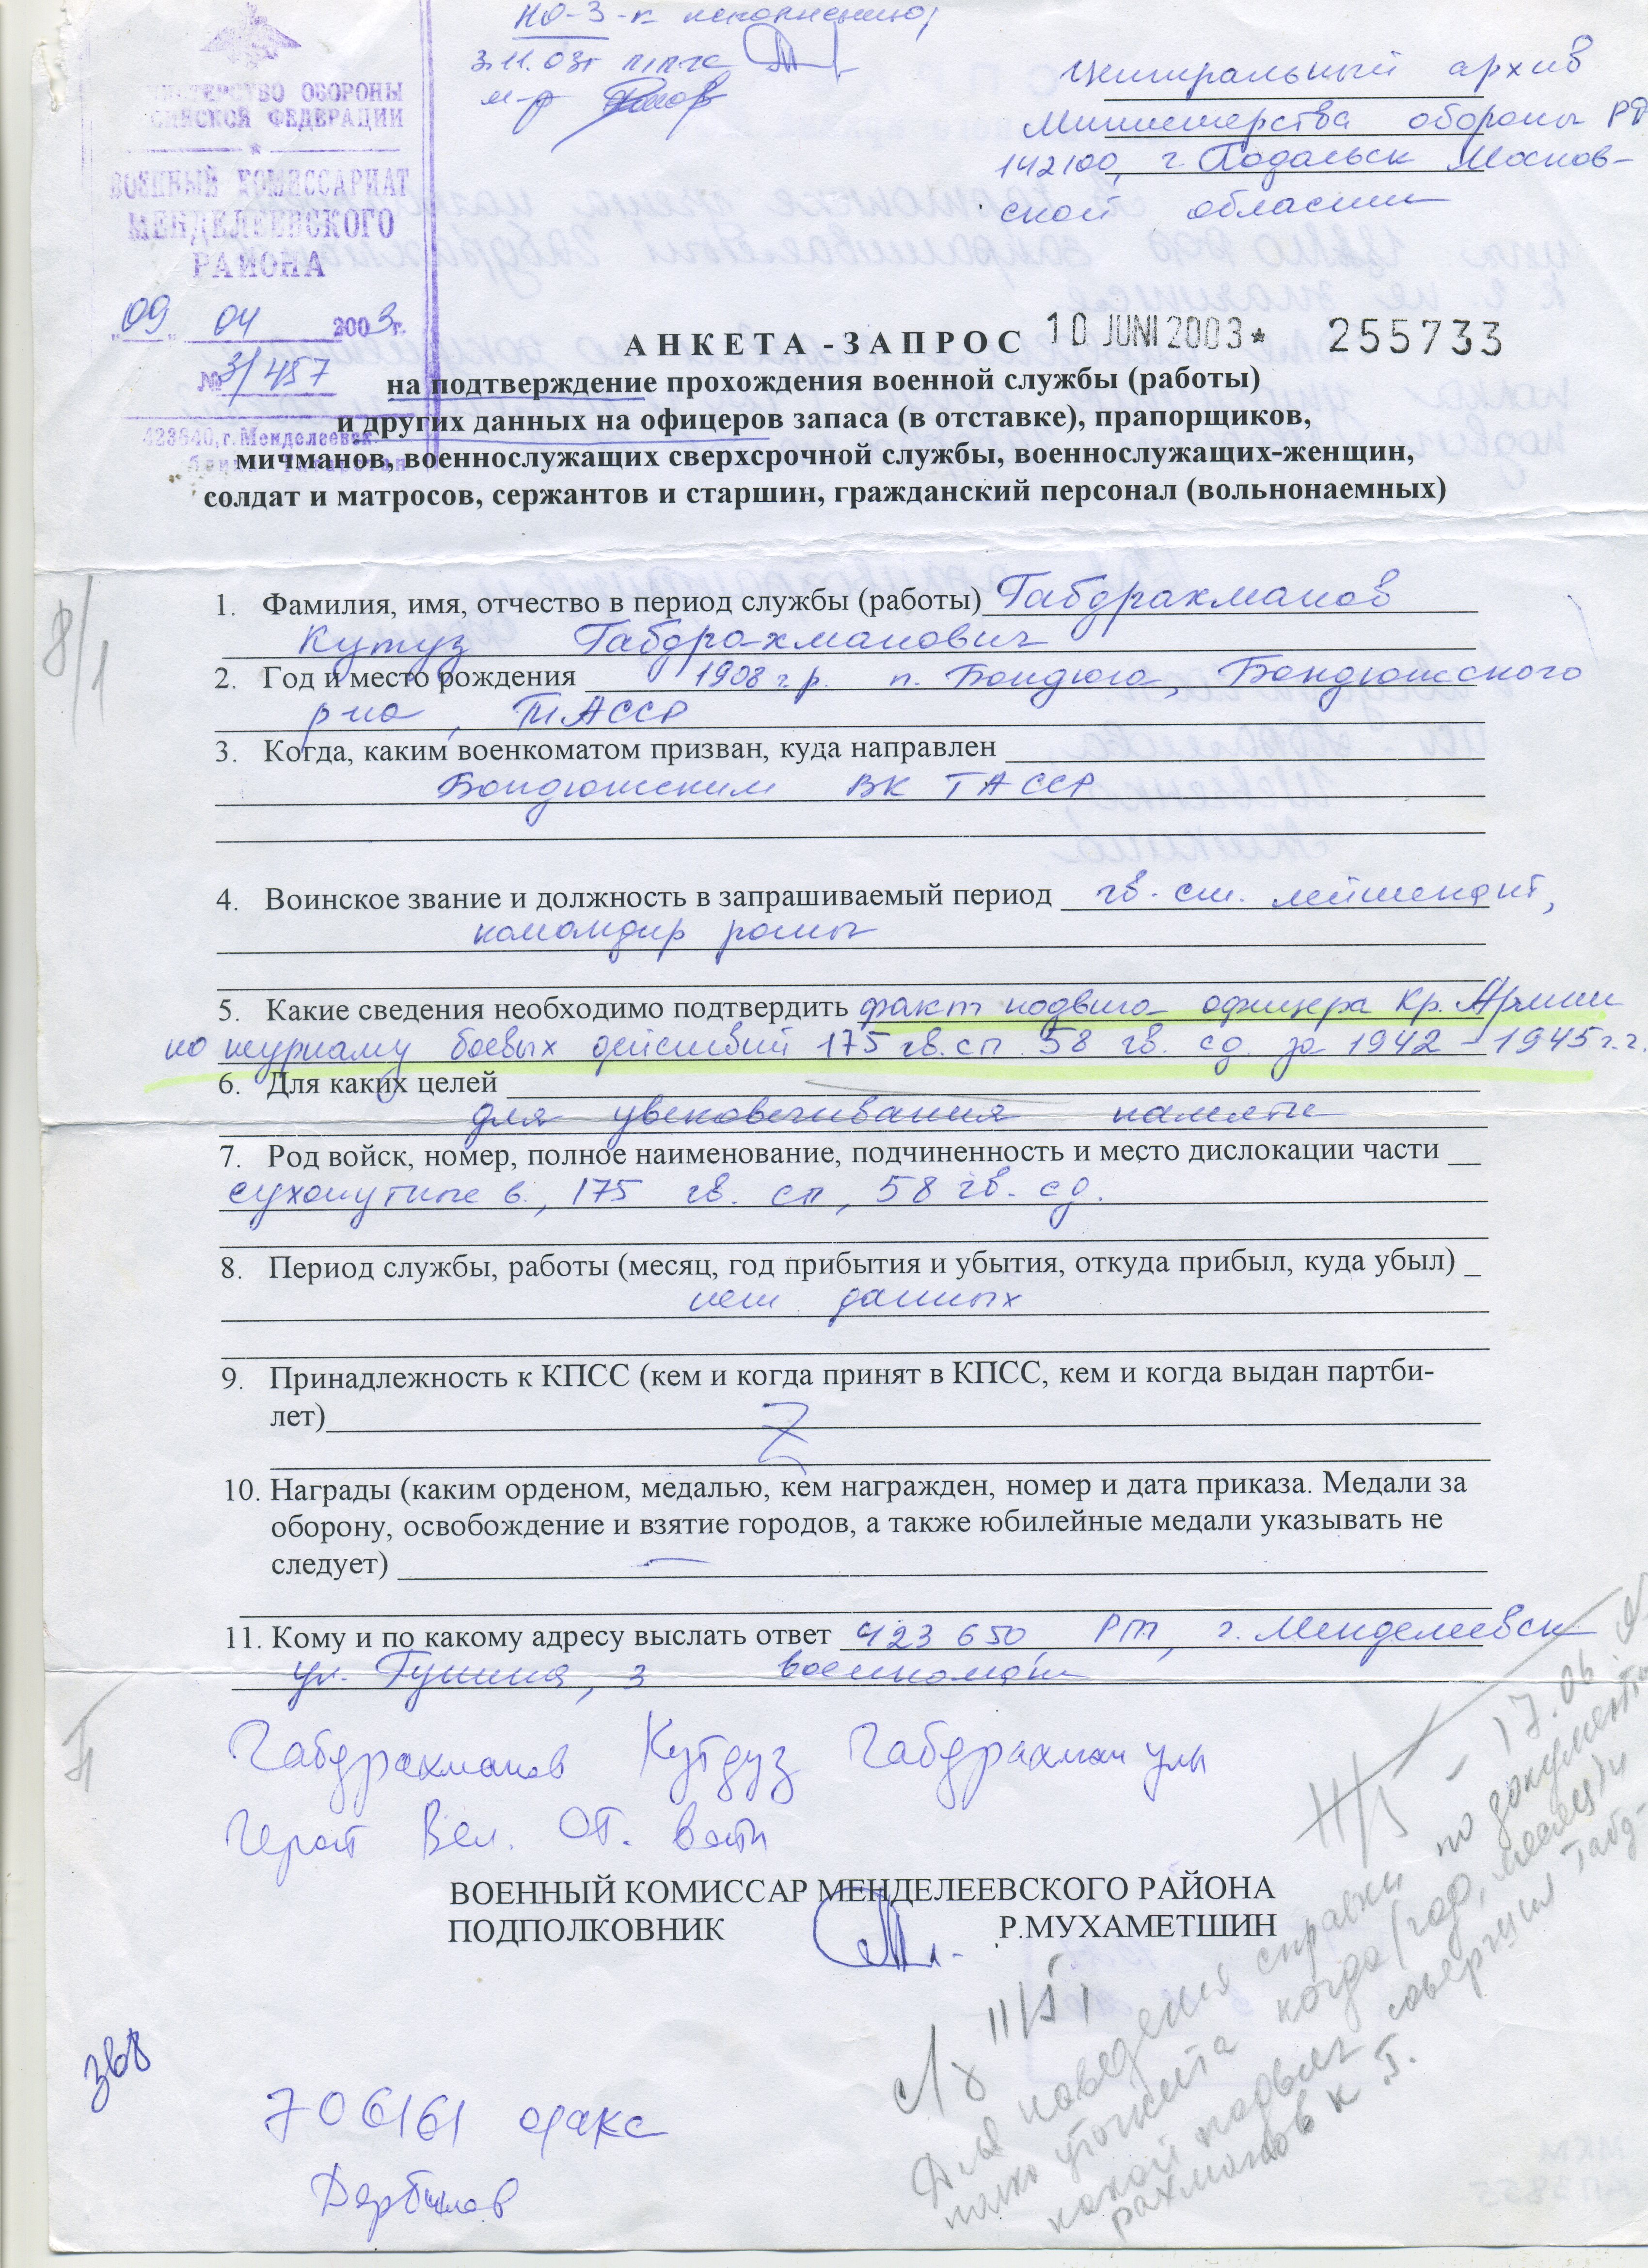 НО-3-к исполнению
3.11.03г
м-р
МИНИСТЕРСТВО ОБОРОНЫ
РОССИЙСКОЙ ФЕДЕРАЦИИ
ВОЕННЫЙ КОМИССАРИАТ
МЕНДЕЛЕЕВСКОГО
РАЙОНА
"09" 04 2003г.
№ 3/457
г. Менделеевск
Центральный архив
Министерства обороны РФ
142100, г. Подольск Москов-
ской области
АНКЕТА-ЗАПРОС 10 JUNI 2003* 255733
на подтверждение прохождения военной службы (работы)
и других данных на офицеров запаса (в отставке), прапорщиков,
мичманов, военнослужащих сверхсрочной службы, военнослужащих-женщин,
солдат и матросов, сержантов и старшин, гражданский персонал (вольнонаемных)
8/1
1. Фамилия, имя, отчество в период службы (работы) Габдрахманов
Кутуз Габдрахманович
2. Год и место рождения 1908 г.р. п. Бондюга, Бондюжского
р-на, ТАССР
3. Когда, каким военкоматом призван, куда направлен
Бондюжским ВК ТАССР
4. Воинское звание и должность в запрашиваемый период гв. ст. лейтенант,
командир роты
5. Какие сведения необходимо подтвердить факт подвига офицера Кр. Армии
по журналу боевых действий 175 гв. сп 58 гв. сд. за 1942 - 1945 г.г.
6. Для каких целей
для увековечивания памяти
7. Род войск, номер, полное наименование, подчиненность и место дислокации части
сухопутные в., 175 гв. сп, 58 гв. сд.
8. Период службы, работы (месяц, год прибытия и убытия, откуда прибыл, куда убыл)
нет данных
9. Принадлежность к КПСС (кем и когда принят в КПСС, кем и когда выдан партби-
лет)
10. Награды (каким орденом, медалью, кем награжден, номер и дата приказа. Медали за
оборону, освобождение и взятие городов, а также юбилейные медали указывать не
следует) —
11. Кому и по какому адресу выслать ответ 423 650, РТ, г. Менделеевск
ул. Тукая, 3 военкомат
Габдрахманов Кутдуз Габдрахман улы
Герой Вел. От. войн
ВОЕННЫЙ КОМИССАР МЕНДЕЛЕЕВСКОГО РАЙОНА
ПОДПОЛКОВНИК Р.МУХАМЕТШИН
17.06
Для наведения справки по документам
надо уточнить когда (год, месяц) и
какой подвиг совершил Габд-
рахманов К Г.
706161 факс